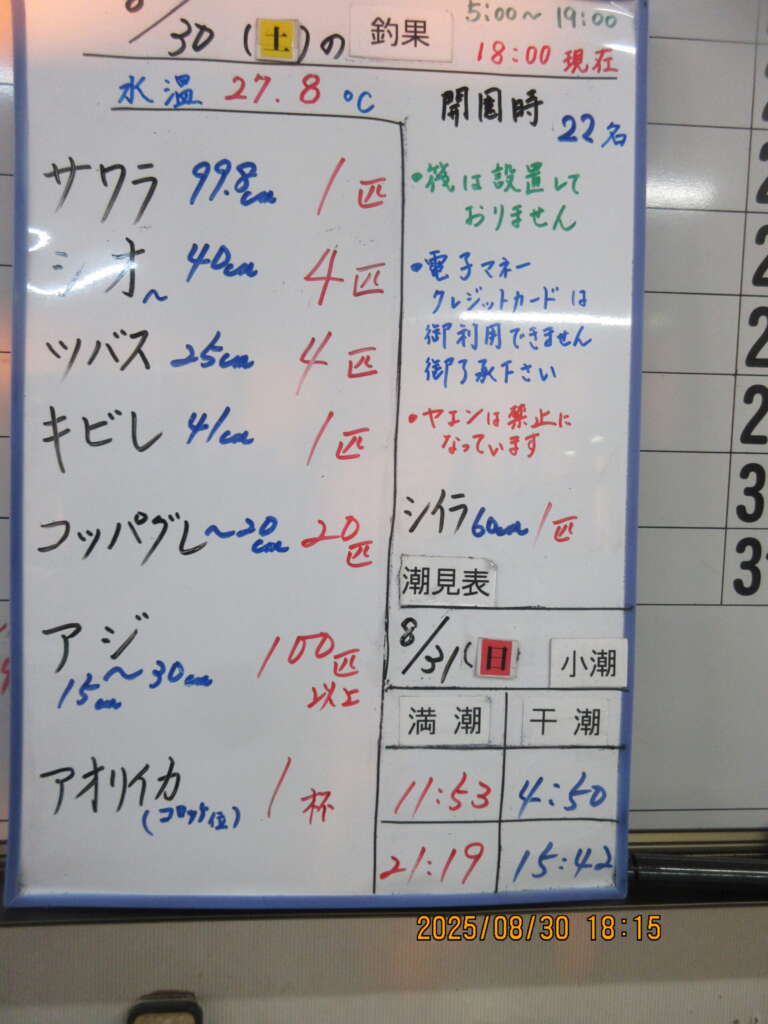 8/30(土)の 釣果
5:00~19:00
18:00 現在
水温 27.8 ℃
開園時 22名
サワラ 99.8cm 1匹
シオ ~40cm 4匹
ツバス 25cm 4匹
キビレ 41cm 1匹
コッパグレ ~20cm 20匹
アジ 15cm~30cm 100匹以上
アオリイカ (コロッケ位) 1杯
・筏は設置して
おりません
・電子マネー
クレジットカードは
御利用できません
御了承下さい
・ヤエンは禁止に
なっています
シイラ 60cm 1匹
潮見表
8/31(日) 小潮
満潮 干潮
11:53 4:50
21:19 15:42
2025/08/30 18:15